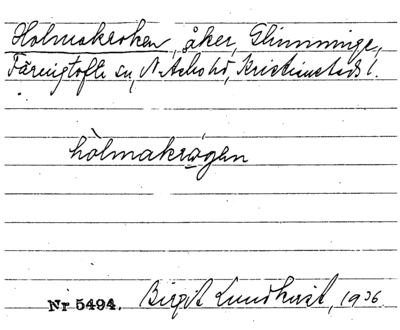 Holmakroken, åker, Glimminge,
Färingtofta sn, N. Åsbo hd, Kristianstads l.
hòlmakrågen
Nr 5494. Birgit Lundkvist, 1936.